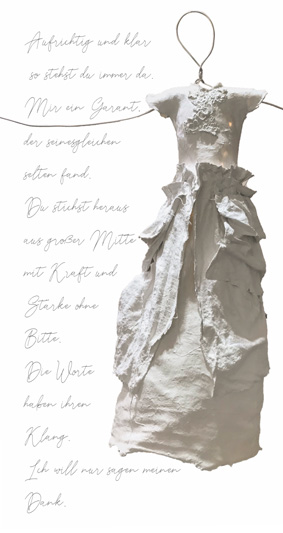 Aufrichtig und klar
so stehst du immer da.
Mir ein Garant,
der seinesgleichen
selten fand.
Du stichst heraus
aus großer Mitte
mit Kraft und
Stärke ohne
Bitte.
Die Worte
haben ihren
Klang.
Ich will nur sagen meinen
Dank.